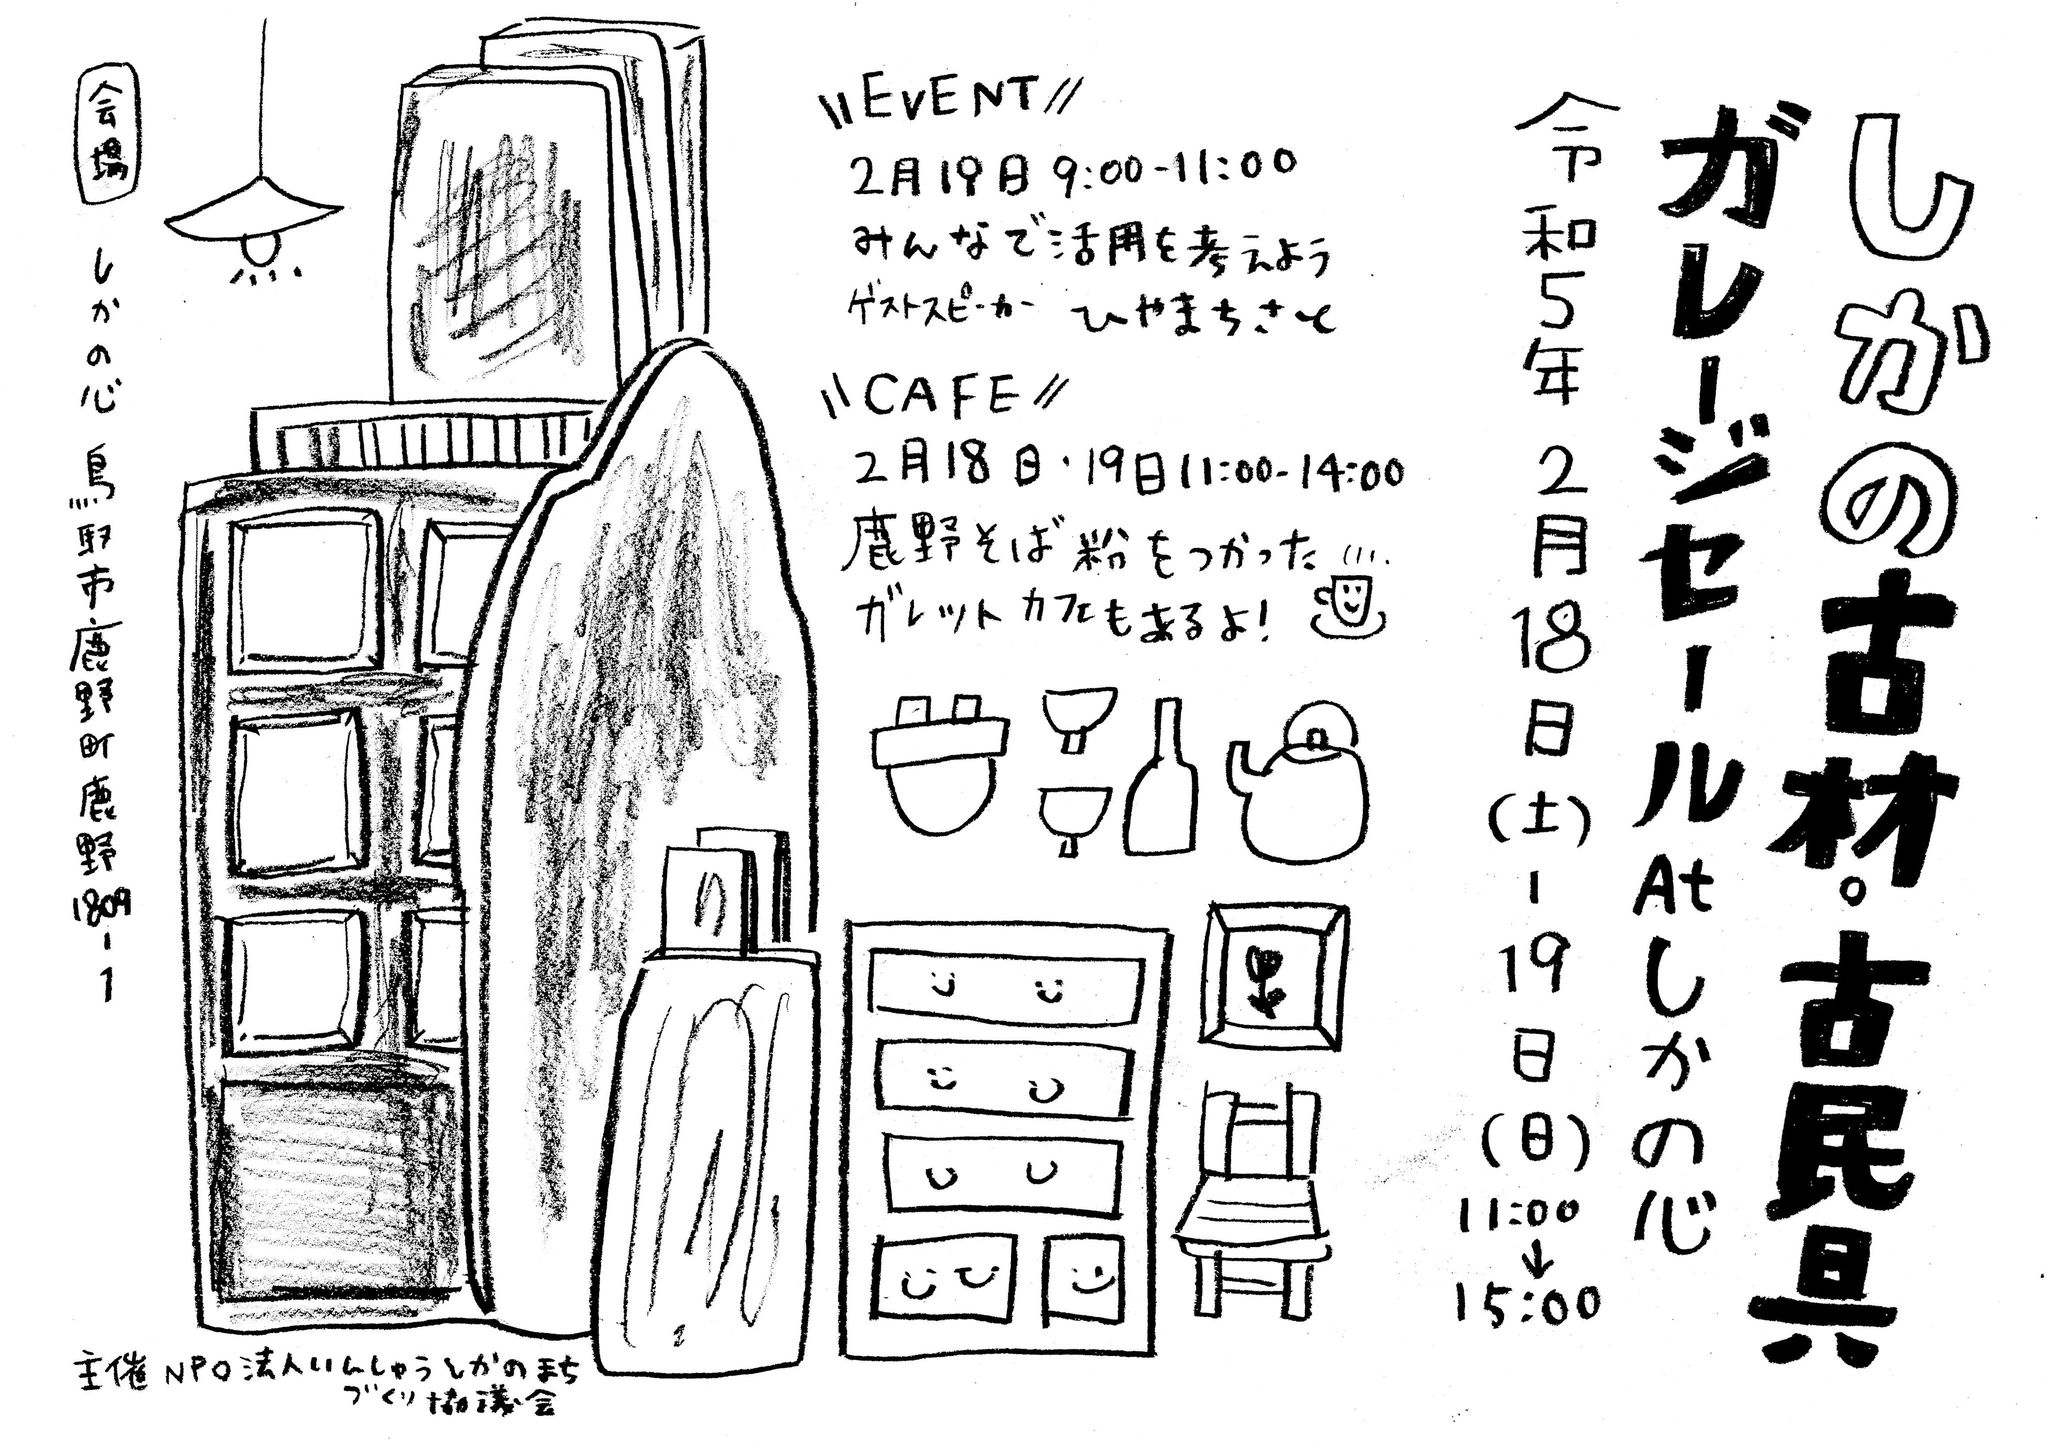 しかの古材。古民具
ガレージセール Atしかの心
令和5年 2月18日(土)-19日(日) 11:00→15:00
EVENT
2月19日 9:00-11:00
みんなで活用を考えよう
ゲストスピーカー ひやまちさと
CAFE
2月18日・19日 11:00-14:00
鹿野そば粉をつかった
ガレットカフェもあるよ!
会場 しかの心 鳥取市鹿野町鹿野1809-1
主催 NPO法人いんしゅうしかのまち
づくり協議会